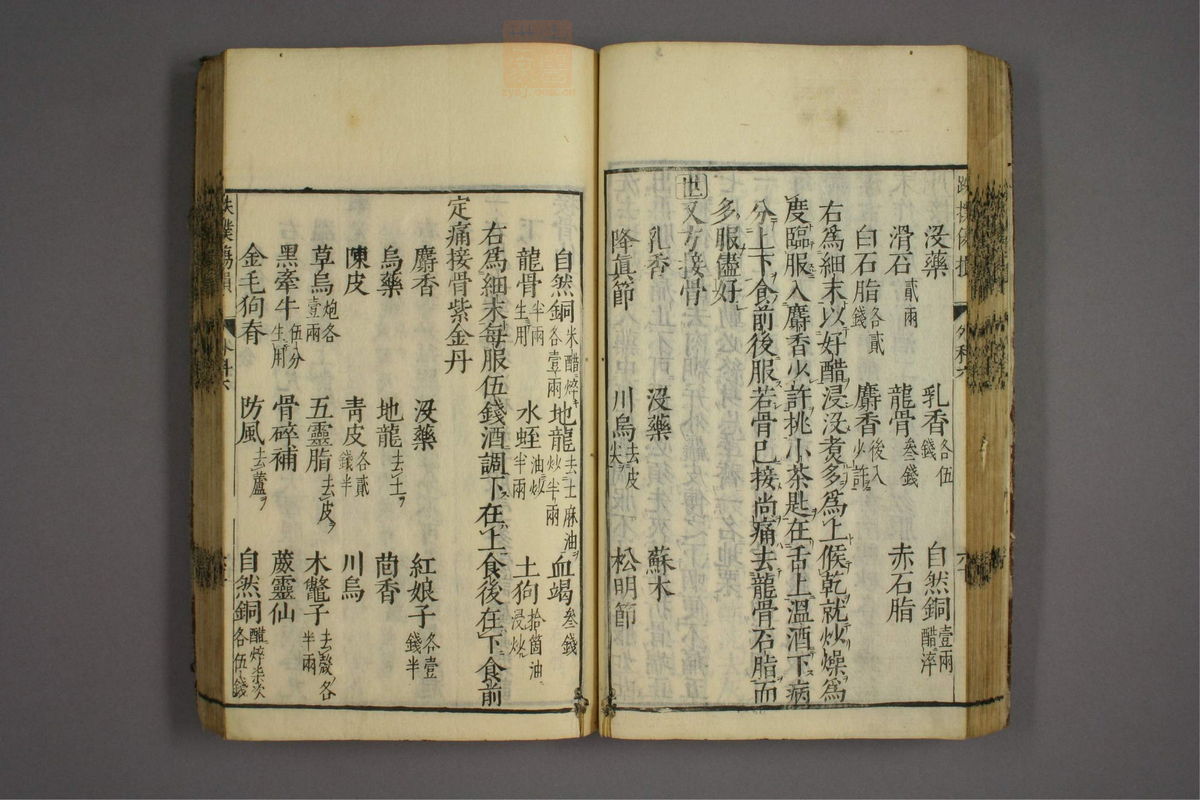 沒藥 乳香各伍錢 自然銅壹兩醋淬
滑石貳兩 龍骨叁錢 赤石脂
白石脂各貳錢 麝香後入少許
右爲細末以好醋浸沒煮多爲上候乾就炒燥爲
度臨服入麝香少許挑小茶匙在舌上溫酒下病
分上下食前後服若骨已接尚痛去龍骨石脂而
多服儘好
世又方接骨
乳香 沒藥 蘇木
降眞節 川烏去皮尖 松明節
自然銅米醋焠各壹兩 地龍去土麻油炒半兩 血竭叁錢
龍骨半兩生用 水蛭油炒半兩 土狗拾箇油浸炒
右爲細末每服伍錢酒調下在上食後在下食前
定痛接骨紫金丹
麝香 沒藥 紅娘子各壹錢半
烏藥 地龍去土 茴香
陳皮 靑皮各貳錢半 川烏
草烏炮各壹兩 五靈脂去皮 木鼈子去殼各半兩
黑牽牛伍分生用 骨碎補 葳靈仙
金毛狗脊 防風去蘆 自然銅醋焠柒次各伍錢